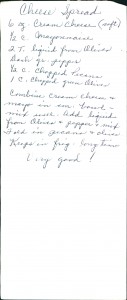 Cheese Spread
6 oz. Cream Cheese (soft)
½ c. Mayonnaise
2 T. liquid from Olives
Dash of pepper
½ c. Chopped Pecans
1 c. Chopped green Olives
Combine cream cheese &
mayo in sm. bowl -
mix well. Add liquid
from Olives & pepper & mix
Fold in pecans & olives
Keeps in frig. long time
Very good!